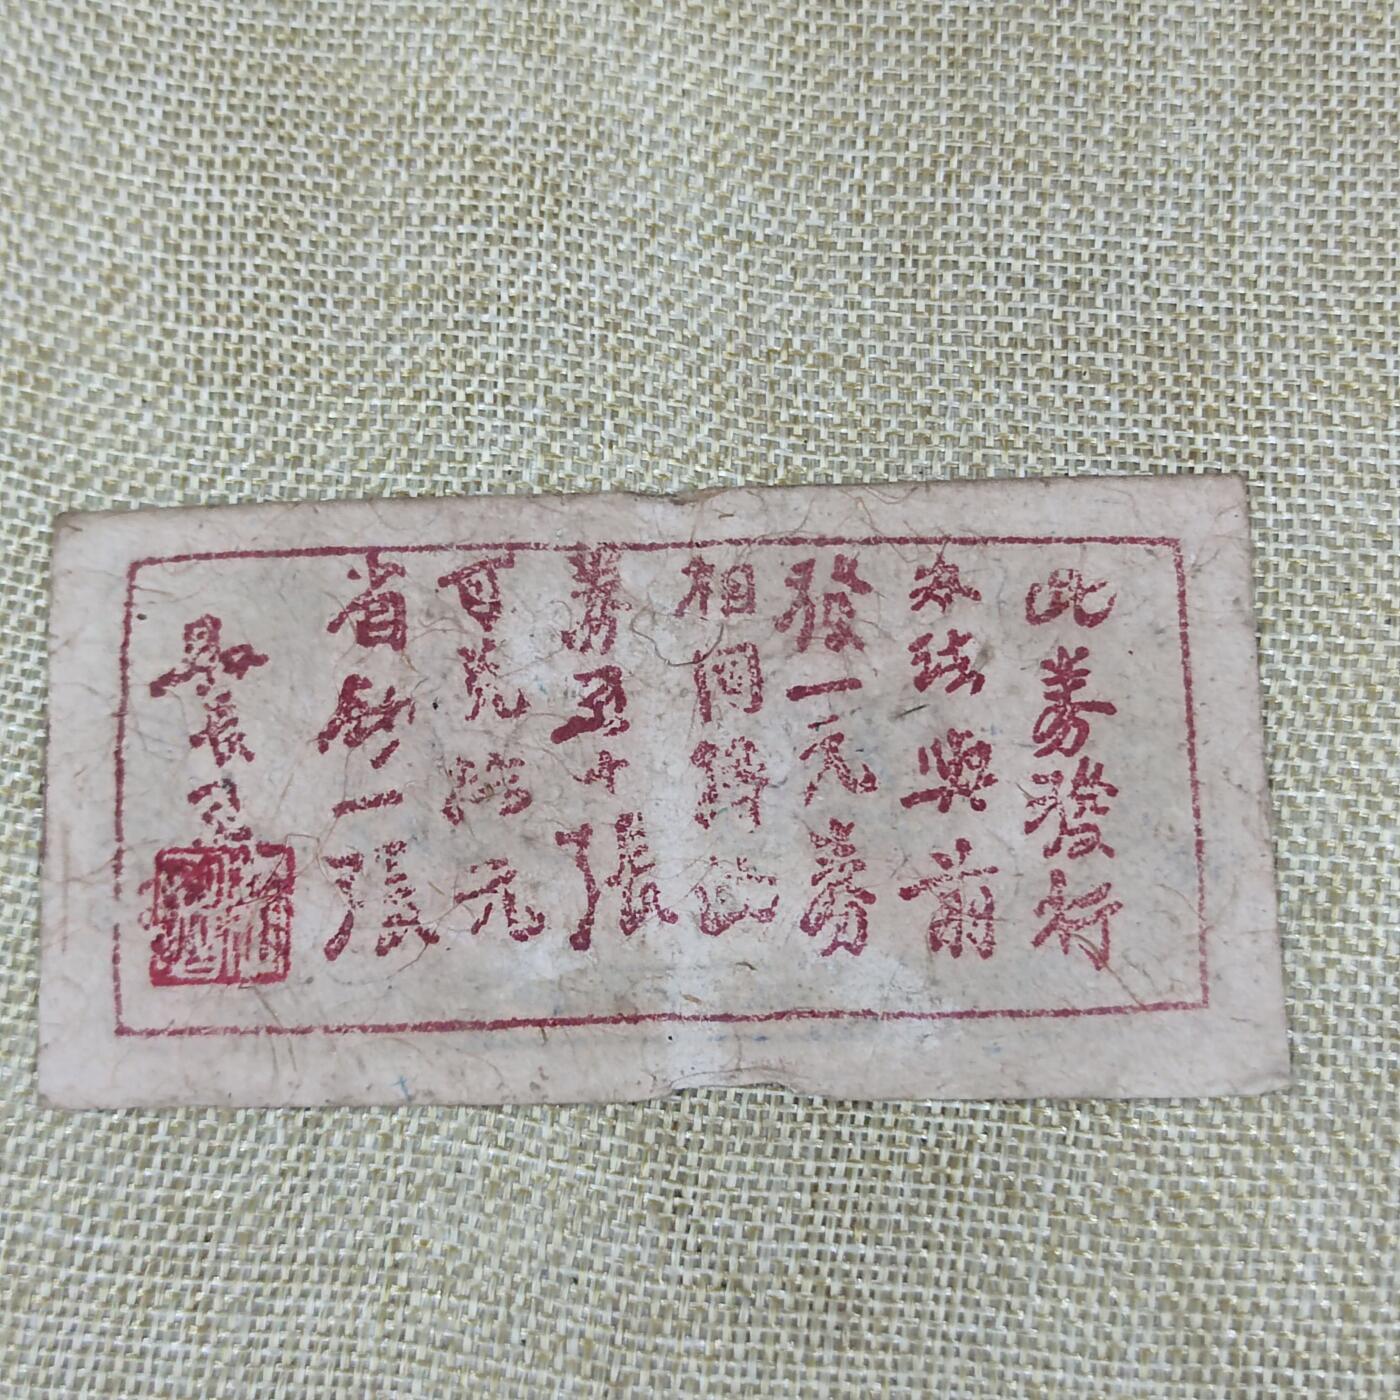 此券發行
办法與前
發一元券
相同倂此
券五十張
可兑拾元
省鈔一張
縣長王